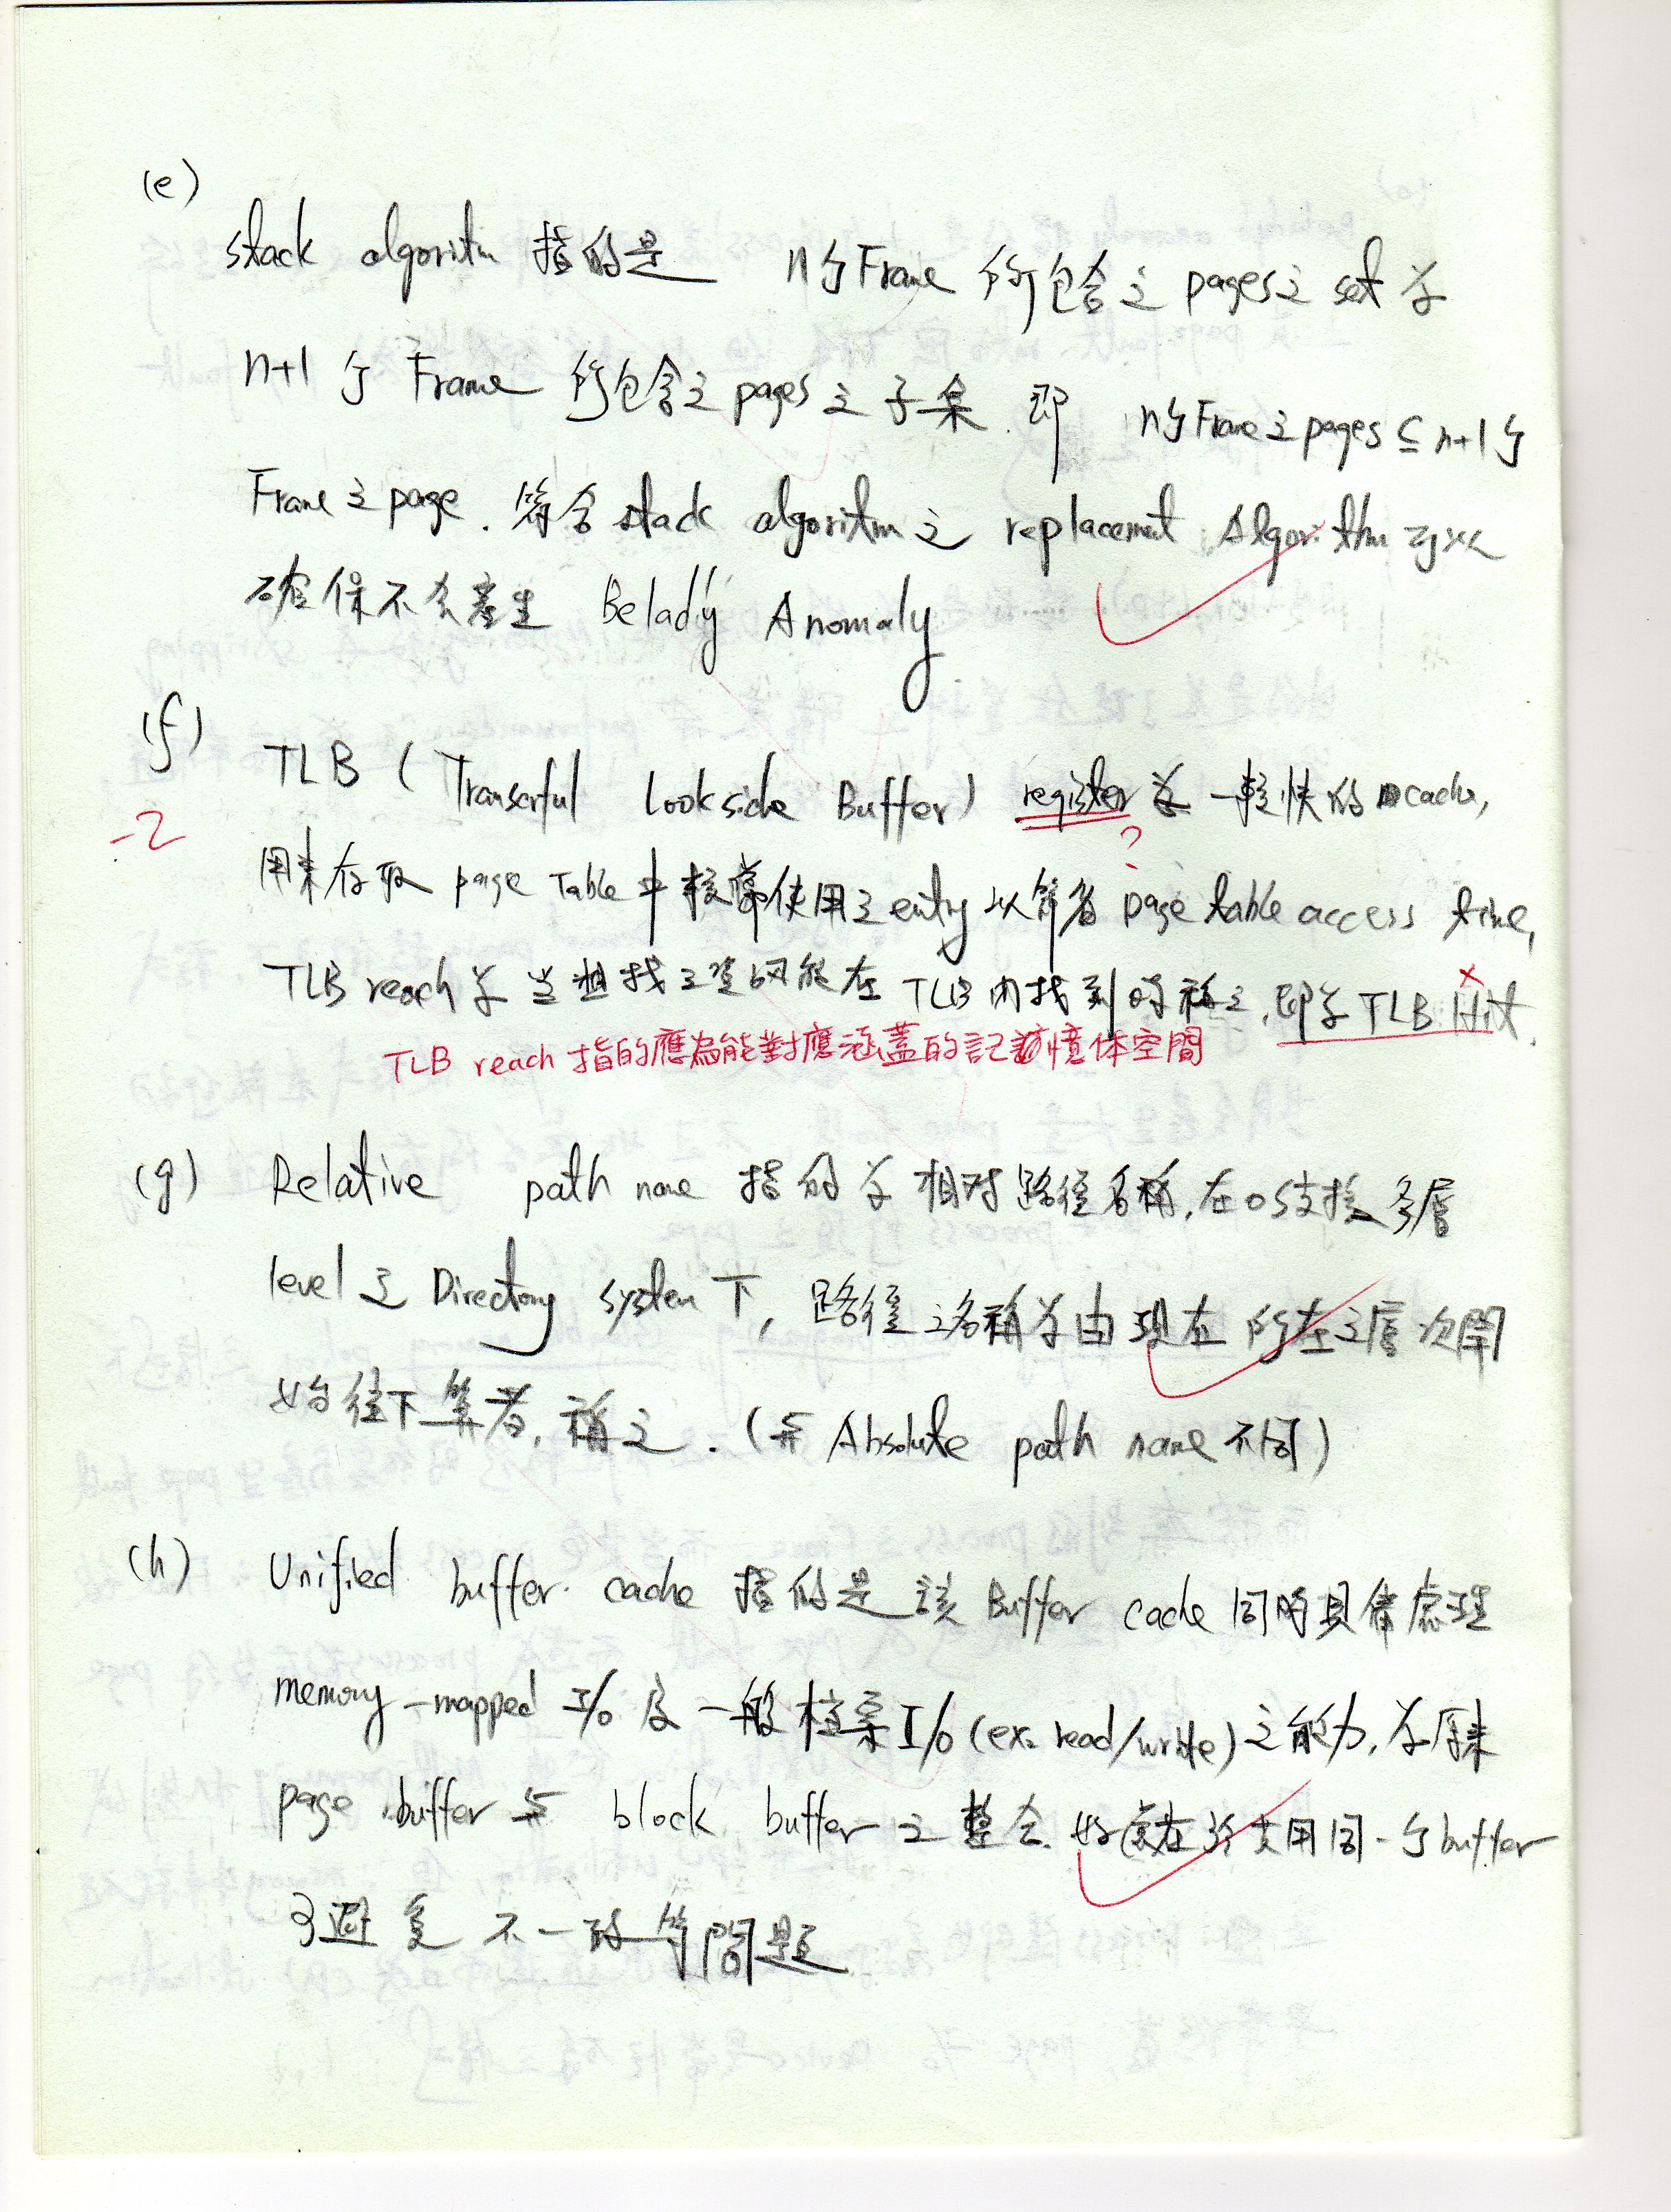 (e)
stack algoritm 指的是 n個Frame 所包含之 pages之 set 為
n+1 個 Frame 所包含之 pages 之 子集. 即 n個Frame之pages ⊆ n+1個
Frame之page. 符合 stack algoritm 之 replacement Algorithm 可以
確保不會產生 Belady Anomaly
(f) TLB ( Look side Buffer) register 為 一較快的 cache,
?
-2
用來存取 page Table 中較常使用之entry 以節省 page table access time,
TLB reach 為 當想找之資訊能在 TLB內找到時稱之, 即為 TLB Hit.
×
TLB reach 指的應為能對應涵蓋的記憶体空間
(g) Relative path name 指的為 相对路徑名稱, 在OS支援多層
level 之 Directory system 下, 路徑之名稱為由現在所在之層次開
始往下算者, 稱之. (与 Absolute path name 不同)
(h) Unified buffer cache 指的是 該 Buffer cache 同時具備處理
memory-mapped I/O 及 一般檔案 I/O (ex. read/write) 之能力, 為原來
page buffer 与 block buffer 之 整合. 好處在於 共用同一個buffer
可避免 不一致等問題